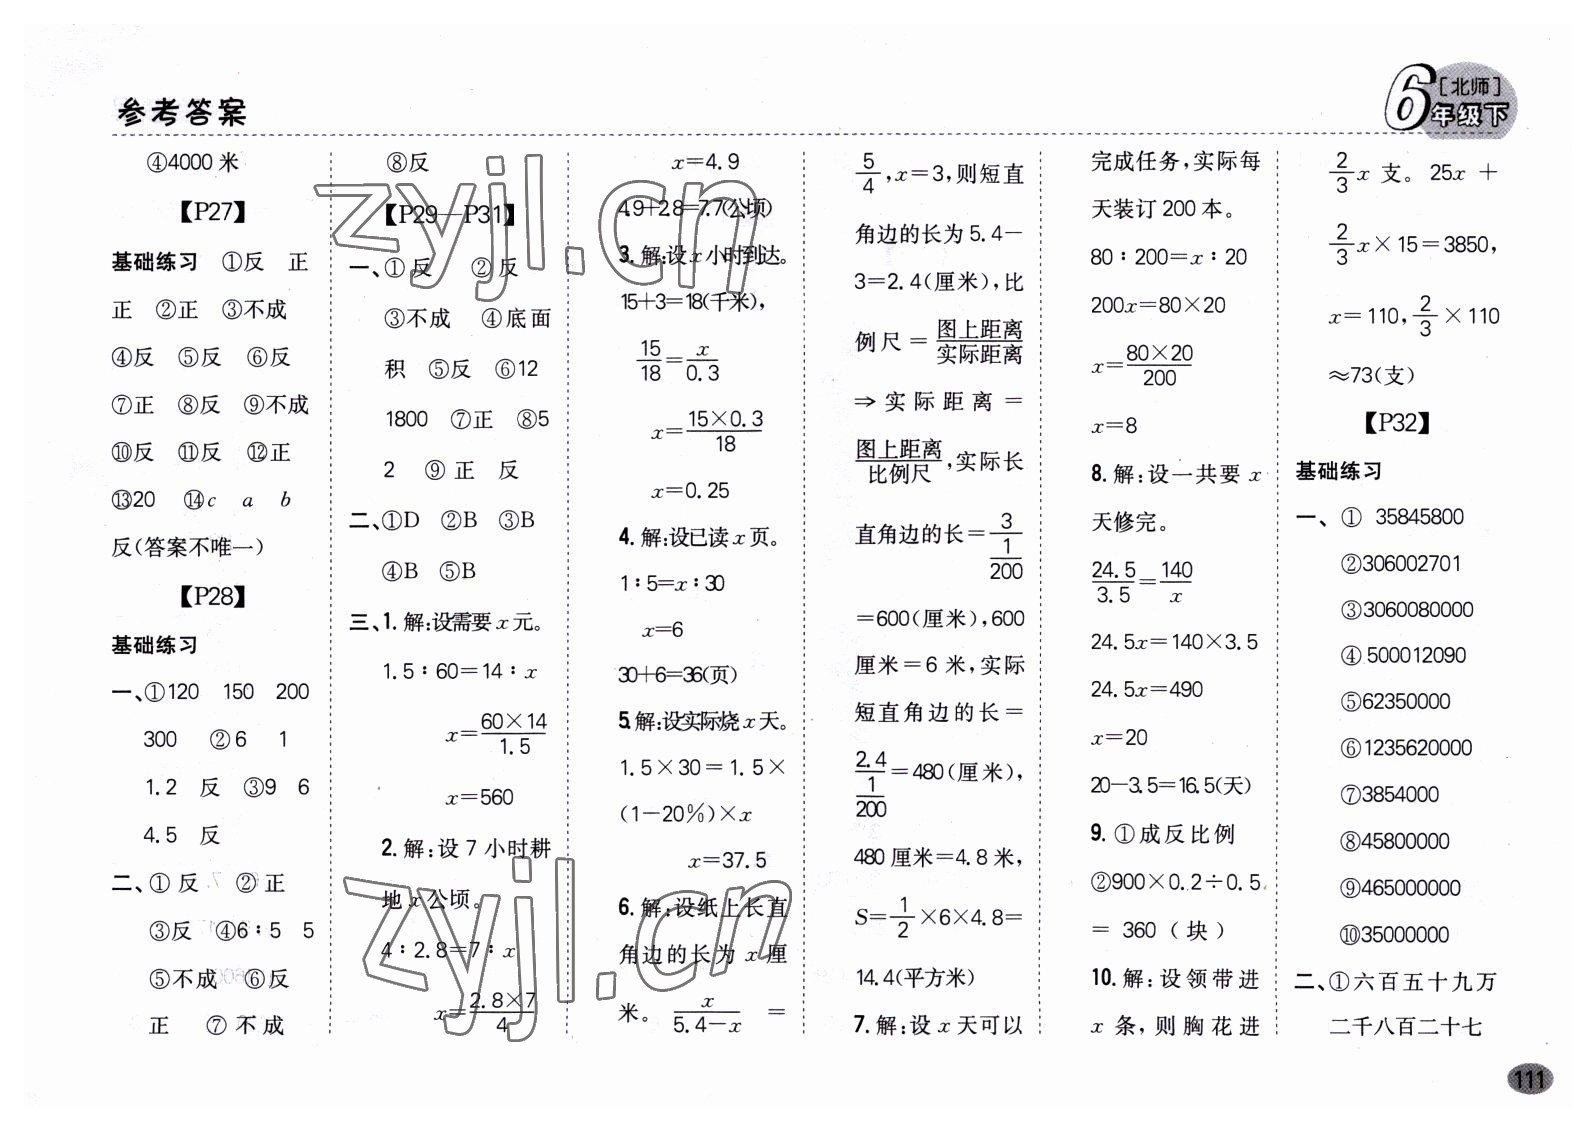 参考答案
6
[北师]
年级下
④4000 米
【P27】
基础练习 ①反 正
正 ②正 ③不成
④反 ⑤反 ⑥反
⑦正 ⑧反 ⑨不成
⑩反 ⑪反 ⑫正
⑬20 ⑭c a b
反(答案不唯一)
【P28】
基础练习
一、①120 150 200
300 ②6 1
1.2 反 ③9 6
4.5 反
二、①反 ②正
③反 ④6∶5 5
⑤不成 ⑥反
正 ⑦不成
⑧反
【P29—P31】
一、①反 ②反
③不成 ④底面
积 ⑤反 ⑥12
1800 ⑦正 ⑧5
2 ⑨正 反
二、①D ②B ③B
④B ⑤B
三、1. 解:设需要 x 元。
1.5∶60=14∶x
x=60×14/1.5
x=560
2. 解:设 7 小时耕
地 x 公顷。
4∶2.8=7∶x
x=2.8×7/4
x=4.9
4.9+2.8=7.7(公顷)
3. 解:设 x 小时到达。
15+3=18(千米),
15/18=x/0.3
x=15×0.3/18
x=0.25
4. 解:设已读 x 页。
1∶5=x∶30
x=6
30+6=36(页)
5. 解:设实际烧 x 天。
1.5×30=1.5×
(1-20%)×x
x=37.5
6. 解:设纸上长直
角边的长为 x 厘
米。 x/5.4-x =
5/4,x=3,则短直
角边的长为 5.4-
3=2.4(厘米),比
例尺=图上距离/实际距离
⇒实际距离=
图上距离/比例尺,实际长
直角边的长=3/(1/200)
=600(厘米),600
厘米=6 米,实际
短直角边的长=
2.4/(1/200)=480(厘米),
480 厘米=4.8 米,
S=1/2×6×4.8=
14.4(平方米)
7. 解:设 x 天可以
完成任务,实际每
天装订 200 本。
80∶200=x∶20
200x=80×20
x=80×20/200
x=8
8. 解:设一共要 x
天修完。
24.5/3.5=140/x
24.5x=140×3.5
24.5x=490
x=20
20-3.5=16.5(天)
9. ①成反比例
②900×0.2÷0.5
=360(块)
10. 解:设领带进
x 条,则胸花进
2/3x 支。25x+
2/3x×15=3850,
x=110,2/3×110
≈73(支)
【P32】
基础练习
一、①35845800
②306002701
③3060080000
④500012090
⑤62350000
⑥1235620000
⑦3854000
⑧45800000
⑨465000000
⑩35000000
二、①六百五十九万
二千八百二十七
111
zyjl.cn
zyjl.cn